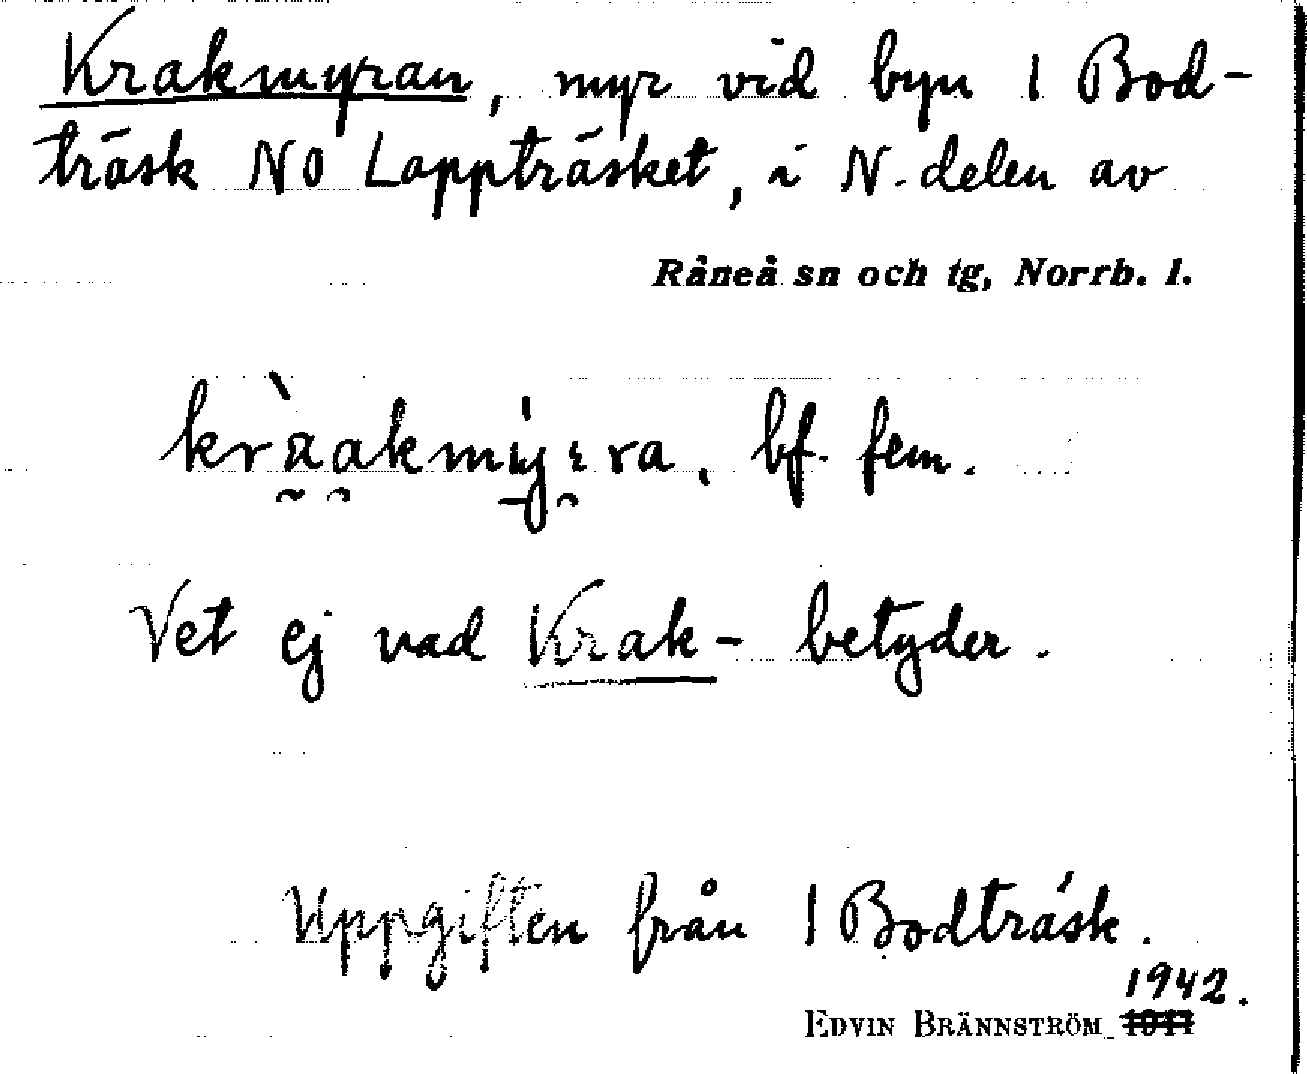 Krakmyran, myr vid byn 1 Bod-
träsk NO Lappträsket, i N. delen av
Råneå sn och tg, Norrb. l.
bf. fem.
Vet ej vad Krak- betyder.
Uppgiften från 1 Bodträsk.
1942.
EDVIN BRÄNNSTRÖM 1941